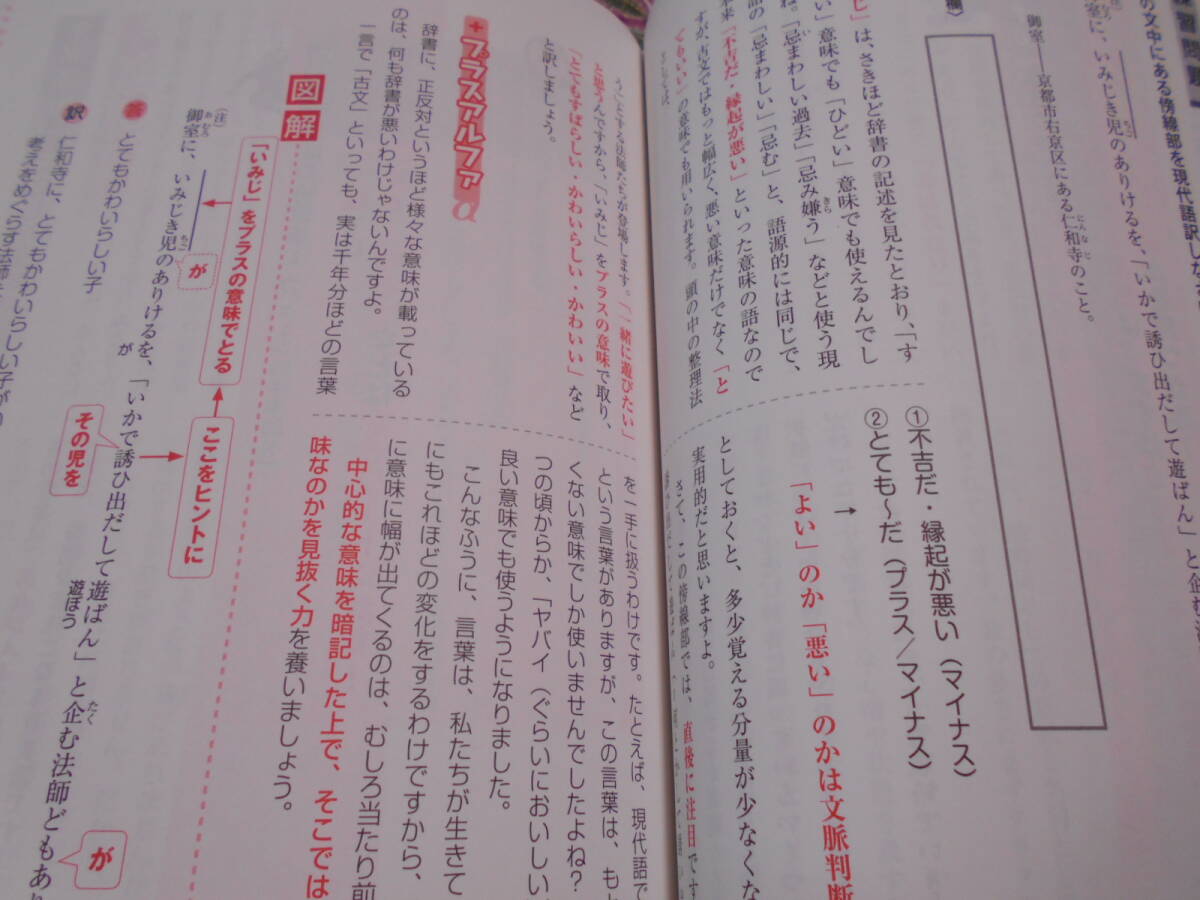 の文中にある傍線部を現代語訳しな
御室に、いみじき児のありけるを、「いかで誘ひ出だして遊ばん」と企む
御室——京都市右京区にある仁和寺のこと。
欄〉
じ」は、さきほど辞書の記述を見たとおり、「す
い」意味でも「ひどい」意味でも使えるんでし
ね。「忌まわしい過去」「忌み嫌う」などと使う現
語の「忌まわしい」「忌む」と、語源的には同じで、
来「不吉だ・縁起が悪い」といった意味の語なので
すが、古文ではもっと幅広く、悪い意味だけでなく「と
てもいい」の意味でも用いられます。頭の中の整理法
としては、
①不吉だ・縁起が悪い（マイナス）
②とても～だ（プラス／マイナス）
→
「よい」のか「悪い」のかは文脈判断
としておくと、多少覚える分量が少なくな
実用的だと思いますよ。
さて、この傍線部では、直後に注目です
う」とする法師たちが登場します。「一緒に遊びたい」
と思うんですから、「いみじ」をプラスの意味で取り、
「とてもすばらしい・かわいらしい・かわいい」など
と訳しましょう。
＋プラスアルファα
辞書に、正反対というほど様々な意味が載っている
のは、何も辞書が悪いわけじゃないんですよ。
一言で「古文」といっても、実は千年分ほどの言葉
を一手に扱うわけです。たとえば、現代語で
という言葉がありますが、この言葉は、も
くない意味でしか使いませんでしたよね？
つの頃からか、「ヤバイ（ぐらいにおいしい
良い意味でも使うようになりました。
こんなふうに、言葉は、私たちが生きて
にもこれほどの変化をするわけですから、
に意味に幅が出てくるのは、むしろ当たり前
中心的な意味を暗記した上で、そこでは
味なのかを見抜く力を養いましょう。
図解
「いみじ」をプラスの意味でとる
ここをヒントに
（注）
御室に、いみじき児のありけるを、「いかで誘ひ出だして遊ばん」と企む法師どもあり
が
が
その児を
遊ぼう
が
答 とてもかわいらしい子
訳 仁和寺に、とてもかわいらしい子が
考えをめぐらす法師